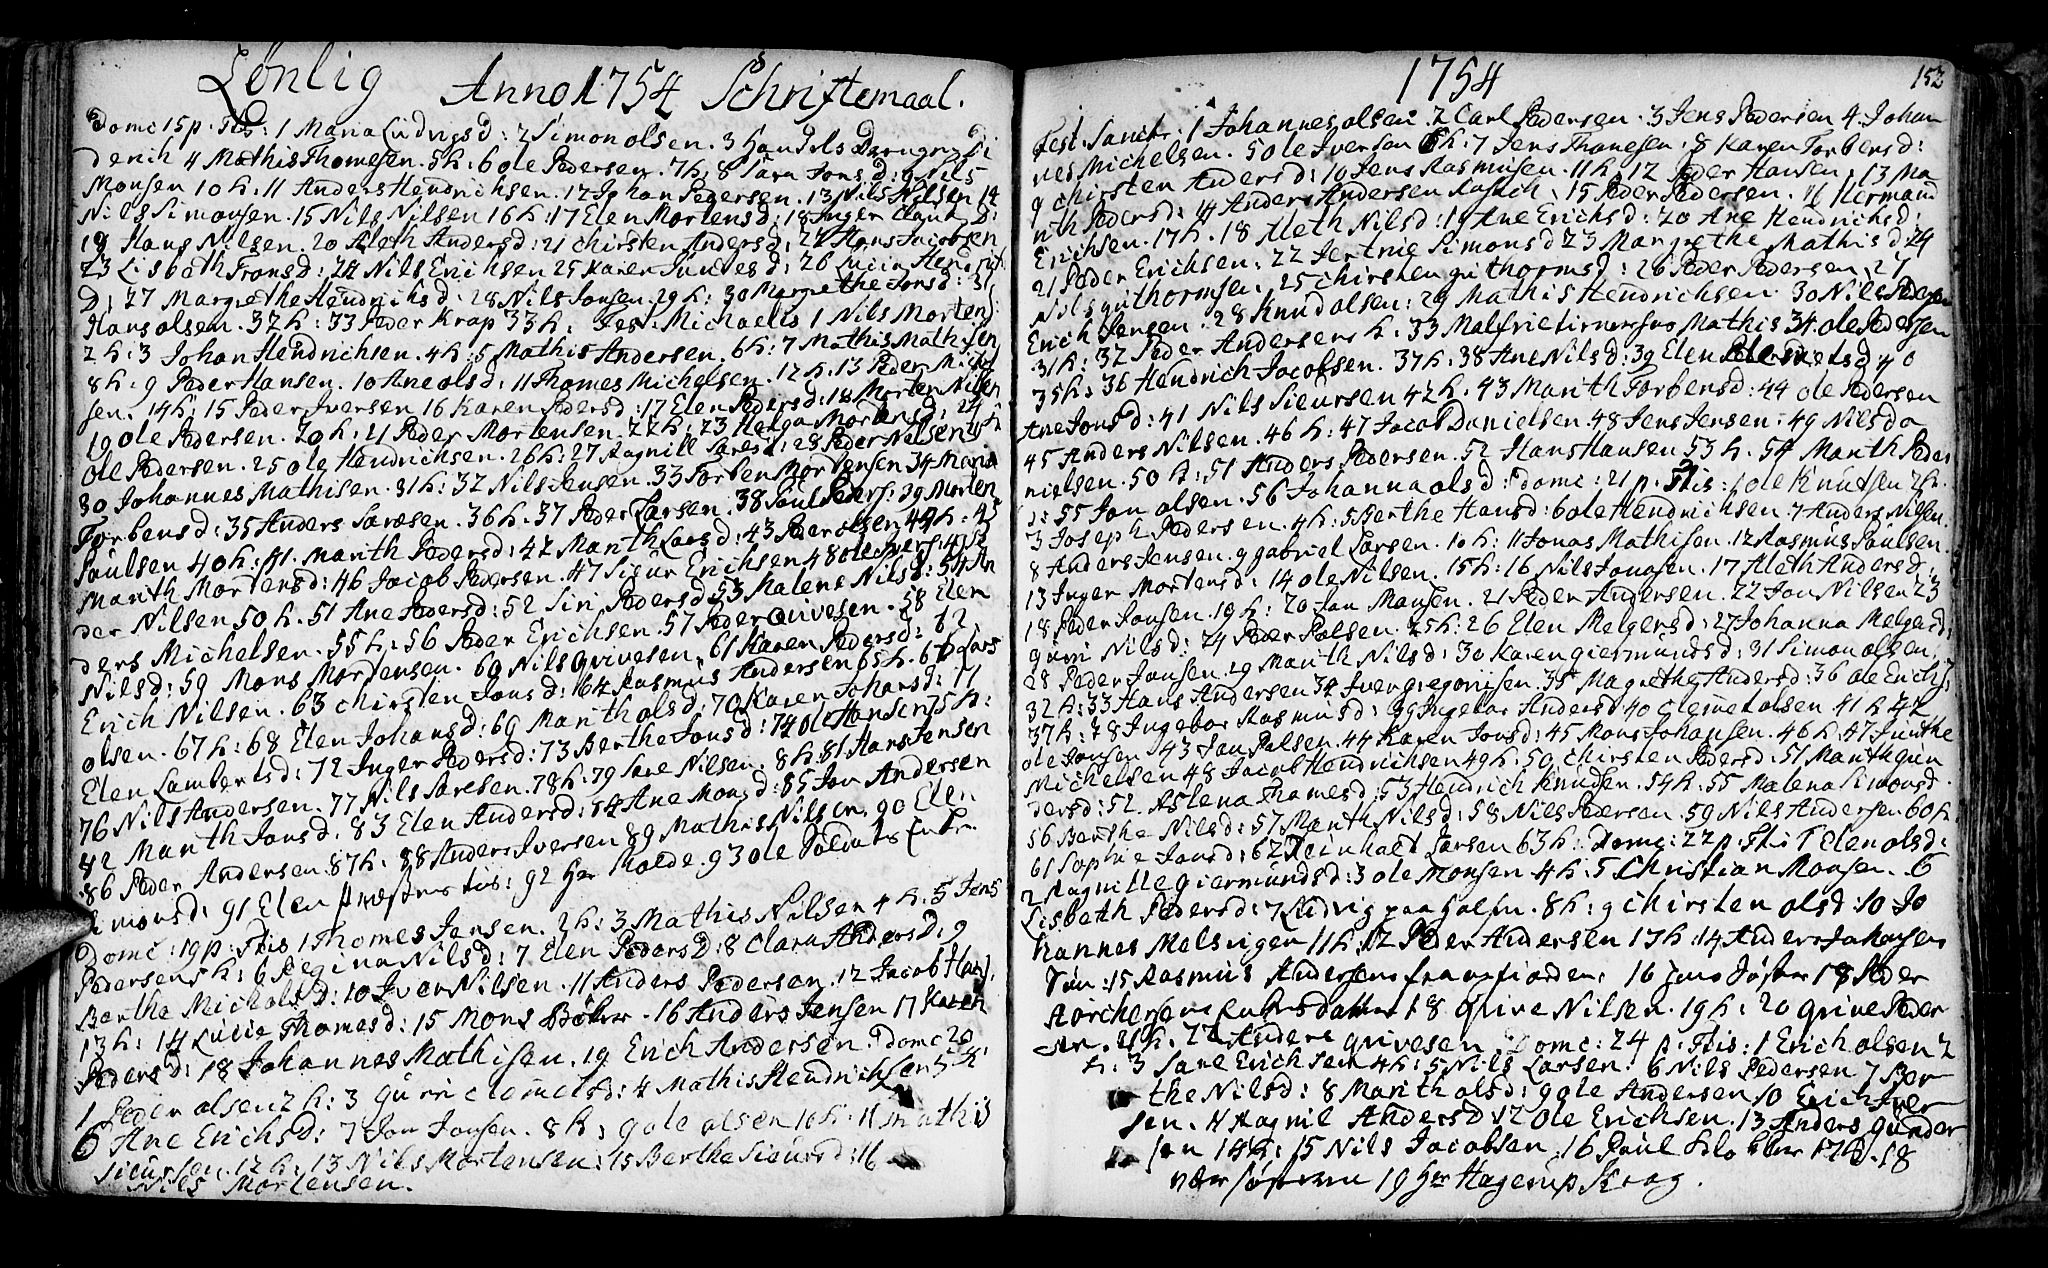 Lønlig Anno 1754 Schriftemaal.
Domc 15 p. Ttis: 1 Maria Ludvigsd: 2 Simon olsen. 3
derich 4 Mathis Thomesen. 5 h: 6 ole Pedersen. 7 h: 8 Sara Jonsd: 9 Nils
Monsen 10 h: 11 Anders Hendrichsen. 12 Johan Pedersen. 13 Nils Nilsen 14
Nils Simonsen. 15 Nils Nilsen 16 h: 17 Elen Mortensd: 18 Inger
19 Hans Nilsen. 20 Aleth Andersd: 21 Chirsten Andersd: 22 Hans Jacobsen
23 Lisbeth Fransd: 24 Nils Erichsen 25 Karen 26 Lucia Hendrich
D: 27 Margrethe Hendrichsd: 28 Nils Jonsen. 29 h: 30 Margrethe Jonsd: 31
Hans olsen. 32 h: 33 Peder Krap 33 h: Fest: Michaelis 1 Nils Mortens:
2 h: 3 Johan Hendrichsen. 4 h: 5 Mathis Andersen. 6 h: 7 Mathis Mathisen
8 h: 9 Peder Hansen. 10 Ane olsd: 11 Thomes Michelsen. 12 h: 13 Peder Michel
sen. 14 h: 15 Peder Iversen 16 Karen Pedersd: 17 Elen Pedersd: 18 Morten Nilsen
19 ole Pedersen. 20 h: 21 Peder Mortensen. 22 h: 23 Helga Mortensd: 24
Ole Pedersen. 25 ole Hendrichsen. 26 h: 27 Ragnill Laresd: 28 Peder Nilsen
30 Johannes Mathisen. 31 h: 32 Nils Jensen. 33 Torben Mortensen 34 Maria
Torbensd: 35 Anders Laresen. 36 h: 37 Peder Larsen. 38 Paul Peders: 39 Morten
Paulsen 40 h: 41. Marith Pedersd: 42 Marith Larsd: 43 Peder olsen 44 h: 45
Marith Mortensd: 46 Jacob Pedersen. 47 Sigur Erichsen 48 ole Ivers: 49
der Nilsen 50 h. 51 Ane Pedersd: 52 Siri Pedersd 53 Malene Nilsd: 54 An
ders Michelsen. 55 h: 56 Peder Erichsen. 57 Peder Qvivesen. 58 Elen
Nilsd: 59 Mons Mortensen. 60 Nils Qvivesen. 61 Karen Pedersd: 62
Erich Nilsen. 63 Chirsten Jonsd: 64 Rasmus Andersen 65 h. 66 Lars
olsen. 67 h: 68 Elen Johansd: 69 Marith olsd: 70 Karen Johansd: 71
Elen Lambertsd: 72 Inger Pedersd: 73 Berthe Jonsd: 74 ole Hansen 75 h:
76 Nils Andersen. 77 Nils Laresen. 78 h: 79 Lare Nilsen. 8 h: 81 Hans Jensen
42 Marith Jonsd: 83 Elen Andersd: 84 Ane Monsd: 85 Jon Andersen
86 Peder Andersen. 87 h: 88 Anders Iversen 89 Mathis Nilsen. 90 Elen
monsd: 91 Elen 92 her Molde. 93 ole Soldats
Domc: 19 p: Ttis 1 Thomes Jensen. 2 h: 3 Mathis Nilsen 4 h. 5 Jens
Pedersen h: 6 Regina Nilsd: 7 Elen Pedersd: 8 Clara Andersd: 9
Berthe Michelsd: 10 Iver Nilsen. 11 Anders Pedersen. 12 Jacob Hans:
13 h: 14 Lucie Thomesd: 15 Mons 16 Anders Jensen 17 Karen
Pedersd: 18 Johannes Mathisen. 19 Erich Andersen. Domc 20
1 Peder olsen 2 h: 3 Guri Clemetsd: 4 Mathis Hendrichsen 5 h
6 Ane Erichsd: 7 Jon Jonsen. 8 h: 9 ole olsen 10 h: 11 Mathis
Sieursen. 12 h: 13 Nils Mortensen: 15 Berthe Sieursd: 16
Nils Mortensen.
1754
152
Fest: Sanctr: 1 Johannes olsen 2 Carl Pedersen. 3 Jens Pedersen 4 Johan
nes Michelsen. 5 Ole Iversen 6 h: 7 Jens Thomesen. 8 Karen Torbensd:
9 Chirsten Andersd: 10 Jens Rasmusen. 11 h: 12 Peder Hansen. 13 Ma
rith Pedersd: 14 Anders Andersen 15 Peder Pedersen. 16 Hermand
Erichsen. 17 h. 18 Aleth Nilsd: 19 Ane Erichsd: 20 Ane Hendrichsd:
21 Peder Erichsen: 22 Jertrue Simonsd 23 Margrethe Mathisd: 24
Nils Guthormsen: 25 Chirsten Guthormsd: 26 Peder Pedersen. 27
Erich Jensen. 28 Knud olsen: 29 Mathis Hendrichsen 30 Nils Pedersen
31 h: 32 Peder Andersen h: 33 Mathis 34 ole Pedersen
35 h: 36 Hendrich Jacobsen. 37 h: 38 Ane Nilsd: 39 Elen 40
Ane Jonsd: 41 Nils Sieursen 42 h. 43 Marith Torbensd: 44 ole Pedersen
45 Anders Nilsen. 46 h: 47 Jacob Danielsen. 48 Jens Jensen. 49 Nils Da
nielsen. 50 h: 51 Anders Pedersen. 52 Hans Hansen 53 h. 54 Marith Peder
d: 55 Jon olsen. 56 Johanna olsd: Domc: 21 p. Ttis: 1 ole Knutsen 2 h.
3 Joseph Pedersen. 4 h: 5 Berthe Hansd: 6 ole Hendrichsen. 7 Anders Nilsen.
8 Anders Jensen. 9 gabriel Larsen. 10 h: 11 Jonas Mathisen. 12 Rasmus Paulsen.
13 Inger Mortensd: 14 ole Nilsen. 15 h: 16 Nils Jonasen. 17 Aleth Andersd:
18 Peder Jonsen. 19 h: 20 Jon Monsen. 21 Peder Andersen. 22 Jon Nilsen 23
Guri Nilsd: 24 Peder Palsen. 25 h: 26 Elen Melgersd: 27 Johanna Melgersd:
28 Peder Jonsen. 29 Marith Nilsd: 30 Karen Giermundsd: 31 Simon olsen.
32 h: 33 Hans Andersen 34 Iver Gregorisen. 35 Magrethe Andersd: 36 ole Erichs:
37 h: 38 Ingebor Rasmusd: 39 Ingebor Andersd 40 Clemet olsen 41 h 42
ole Jonsen 43 Jon Palsen. 44 Karen Jonsd: 45 Mons Johansen. 46 h: 47
Michelsen 48 Jacob Hendrichsen 49 h: 50 Chirsten Pedersd: 51 Marith Gun
dersd: 52. Aslena Thomesd: 53 Hendrich Knudsen. 54 h: 55 Malena Simonsd
56 Berthe Nilsd: 57 Marith Nilsd: 58 Nils Pedersen. 59 Nils Andersen. 60 h.
61 Sophie Jonsd: 62 Reinholt Larsen 63 h: Domc: 22 p. Ttis 1 Elen olsd:
2 Ragnille Giermundsd: 3 ole Monsen 4 h: 5 Christian Monsen. 6
Lisbeth Pedersd: 7 Ludvig paa 8 h: 9 Chirsten olsd: 10 Jo
hannes Malsingen 11 h: 12 Peder Andersen 13 h: 14 Anders Johansens
Søn: 15 Rasmus Andersens 16 18 Peder
18 Qvive Nilsen. 19 h: 20 Qvive Peder
sen. 21 h. 22 Anders Qvivesen. Domc: 24 p. Ttis: 1 Erich olsen 2
h: 3 Lare Erichsen 4 h: 5 Nils Larsen. 6 Nils Pedersen 7 Ber
the Nilsd: 8 Marith olsd: 9 ole Andersen 10 Erich Iver
sen. 11 Ragnil Andersd: 12 Ole Erichsen. 13 Anders Gunder
sen 14 h: 15 Nils Jacobsen. 16 Paul 17 h: 18
19 Hr Hagerup Krog.